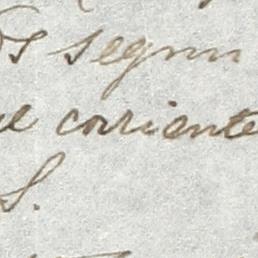 segun
corriente
S.